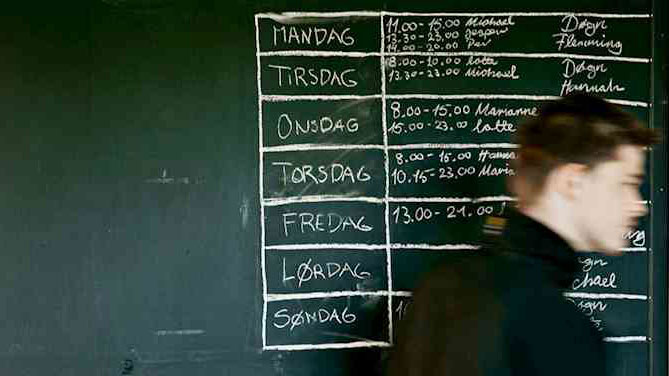 MANDAG
11.00-15.00 Michael
13.30-23.00 Jesper
14.00-20.00 Per
Døgn
Flemming
TIRSDAG
8.00-10.00 Lotte
13.30-23.00 Michael
Døgn
Hannah
ONSDAG
8.00-15.00 Marianne
15.00-23.00 Lotte
TORSDAG
8.00-15.00 Hanna
10.15-23.00 Maria
FREDAG
13.00-21.00
LØRDAG
SØNDAG